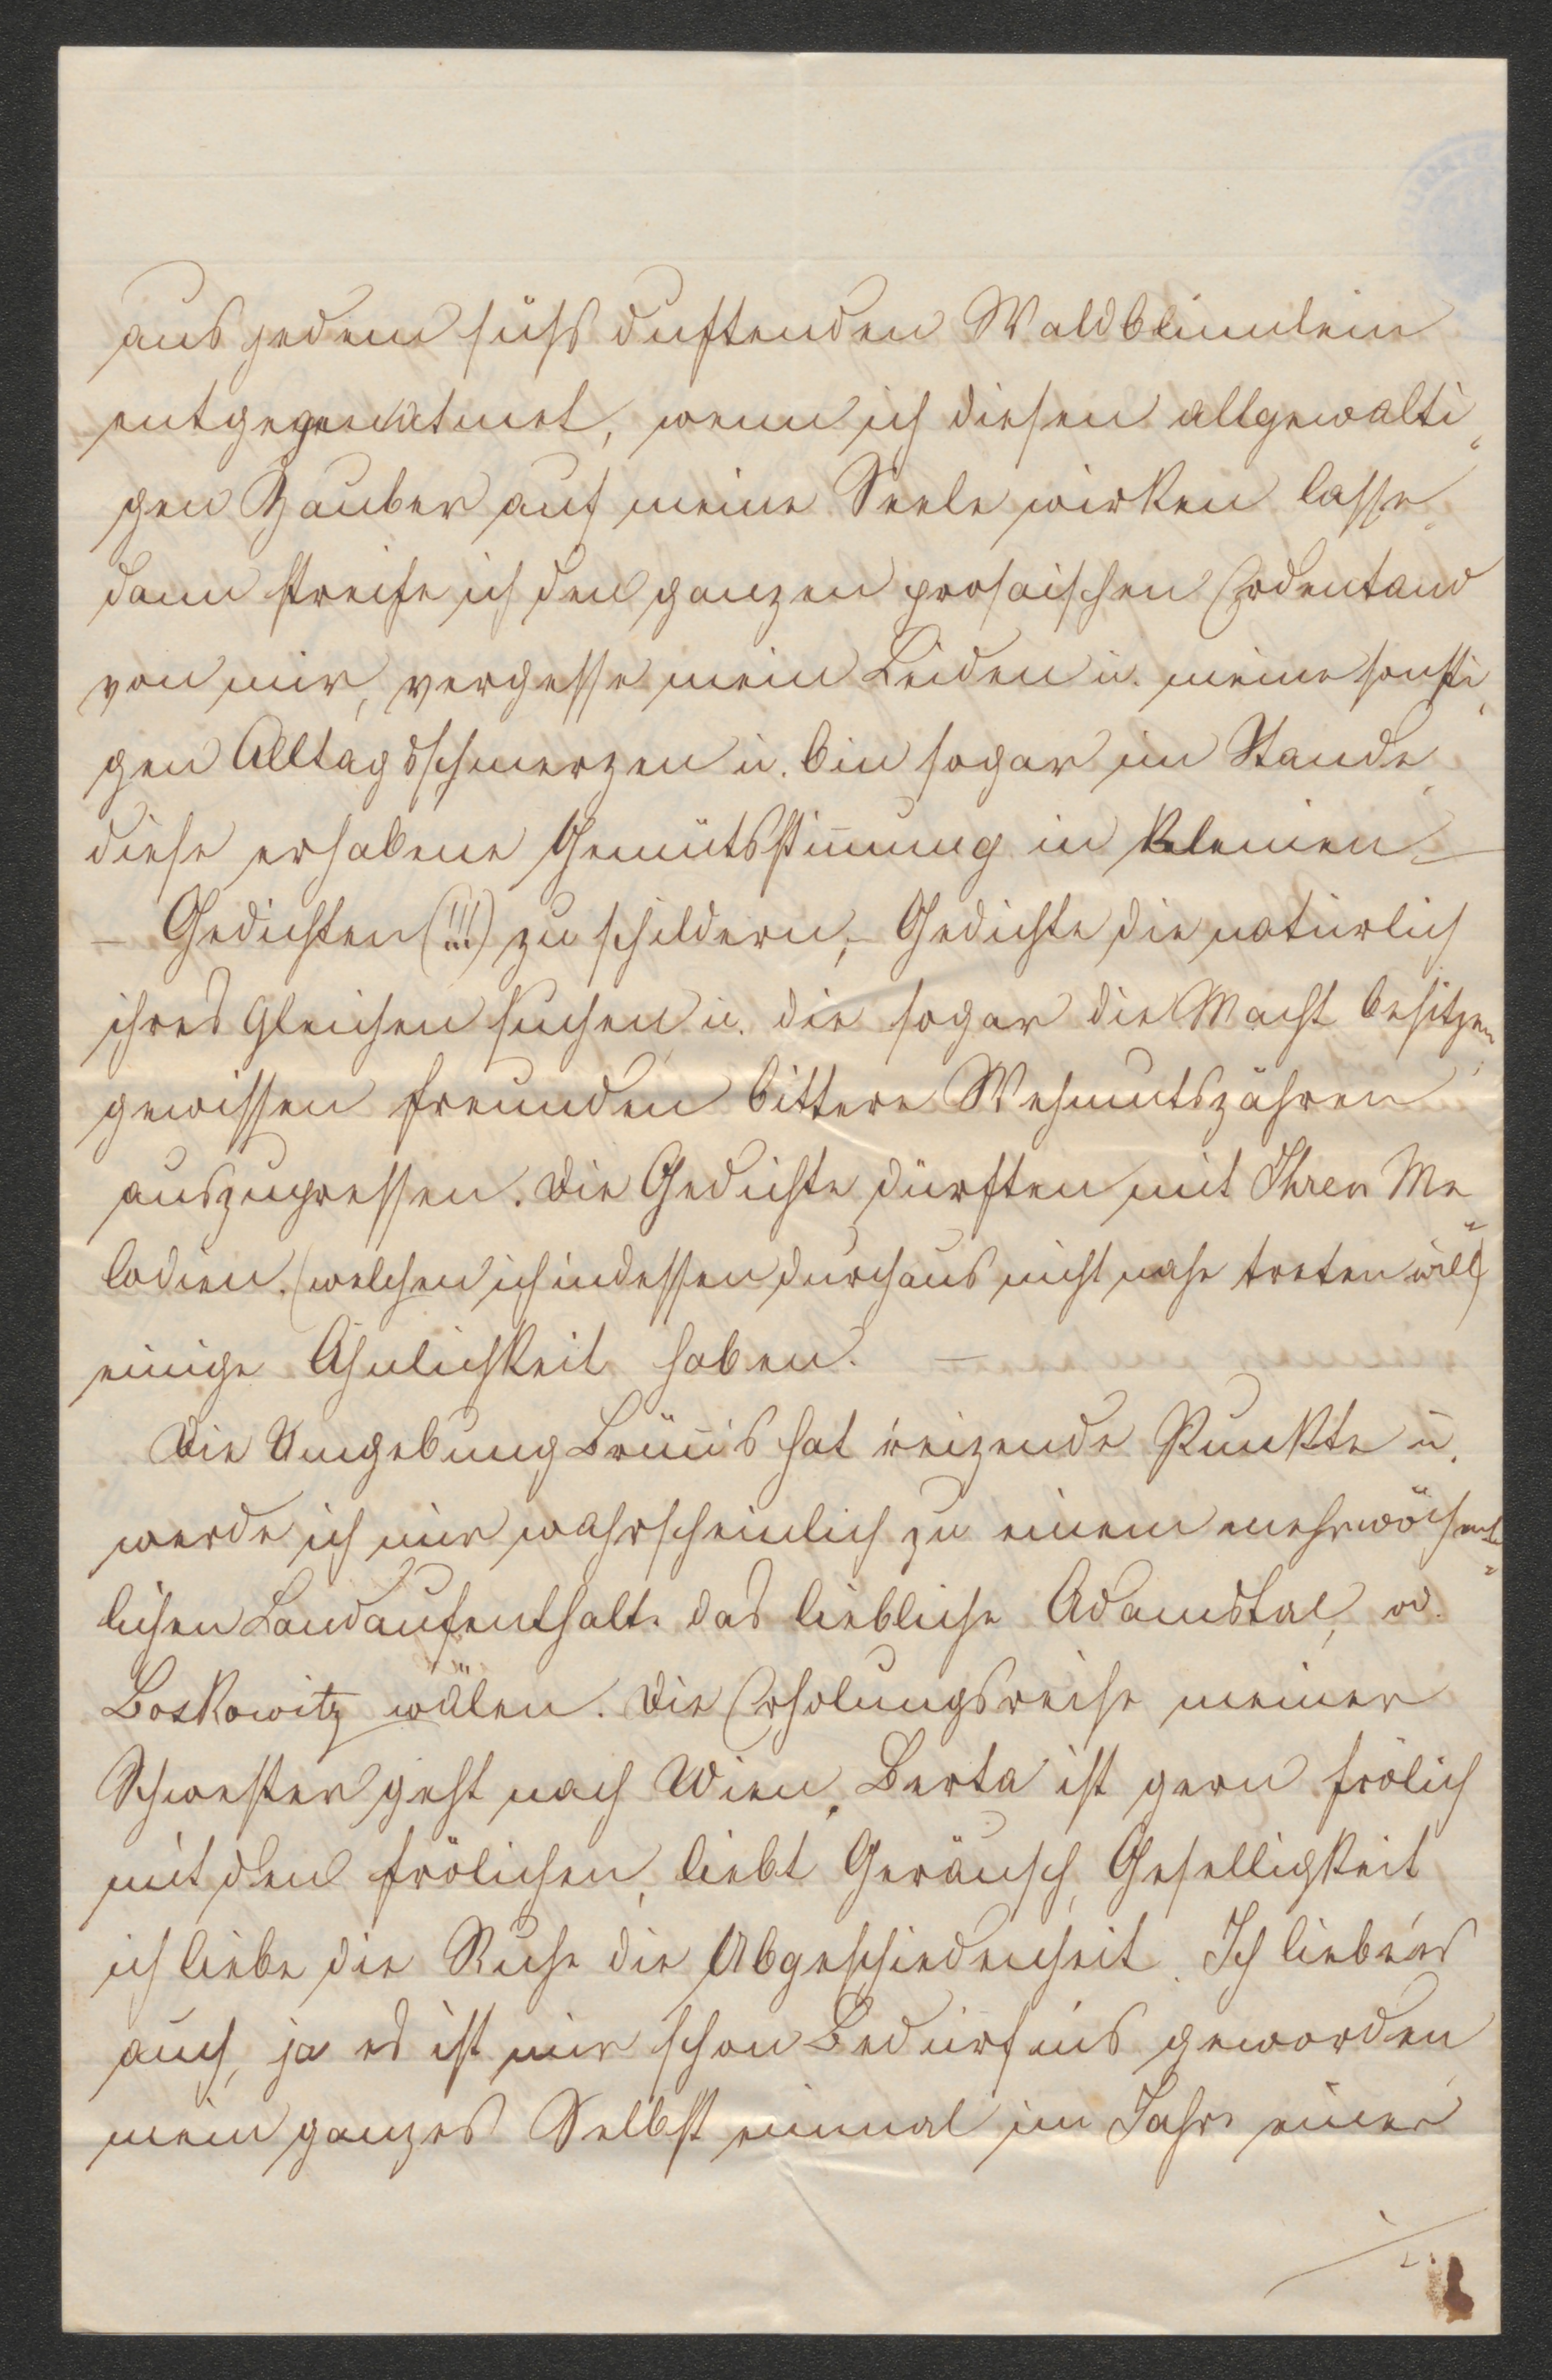 aus jedem süß duftenden Waldblümlein
entgegenatmet, wenn ich diesen allgewalti„
gen Zauber auf meine Seele wirken lasse,
dann streife ich den ganzen prosaischen Erdentand
von mir, vergesse mein Leiden u. meine sonsti„
gen Alltagsschmerzen u. bin sogar im Stande,
diese erhabene Gemütsstim̄ung in kleinen –
– Gedichten (!!!) zu schildern, – Gedichte die natürlich
ihres Gleichen suchen u. die sogar die Macht besitzen,
gewissen Freunden bittere Wehmutszähren
auszupressen. Die Gedichte dürften mit Ihren Me„
lodien, (welchen ich indessen durchaus nicht nahe treten will)
einige Ähnlichkeit haben. –
Die Umgebung Brün̄s hat reizende Punkte u.
werde ich mir wahrscheinlich zu einem mehrwöchent„
lichen Landaufenthalte das liebliche Adamstal, od.
Boskowitz wälen. Die Erholungsreise meiner
Schwester geht nach Wien. Berta ist gern frölich
mit den Frölichen, liebt Geräusch, Geselligkeit
ich liebe die Ruhe die Abgeschiedenheit. Ich liebe es
auch, ja es ist mir schon Bedürfnis geworden,
mein ganzes Selbst einmal im Jahre einer